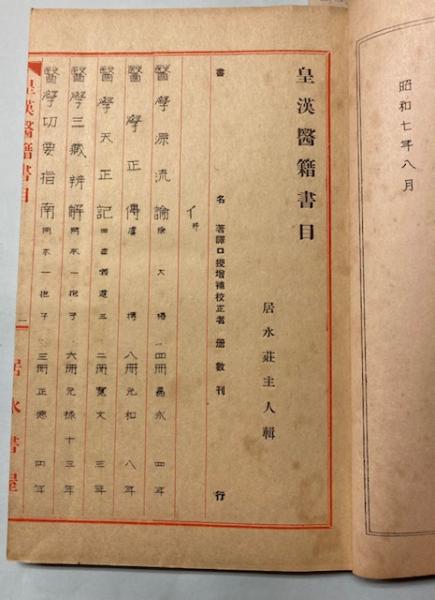 昭和七年八月
皇漢醫籍書目
居水莊主人輯
書名 著譯口授增補校正者 册數 刊行
イ部
醫學源流論 徐大椿 四册 嘉永四年
醫學正傳 虞摶 八册 元和八年
醫學天正記 曲直瀨道三 二册 寬文三年
醫學三藏辨解 岡本一抱子 六册 元祿十三年
醫學切要指南 岡本一抱子 三册 正德四年
皇漢醫籍書目 一 居水書屋